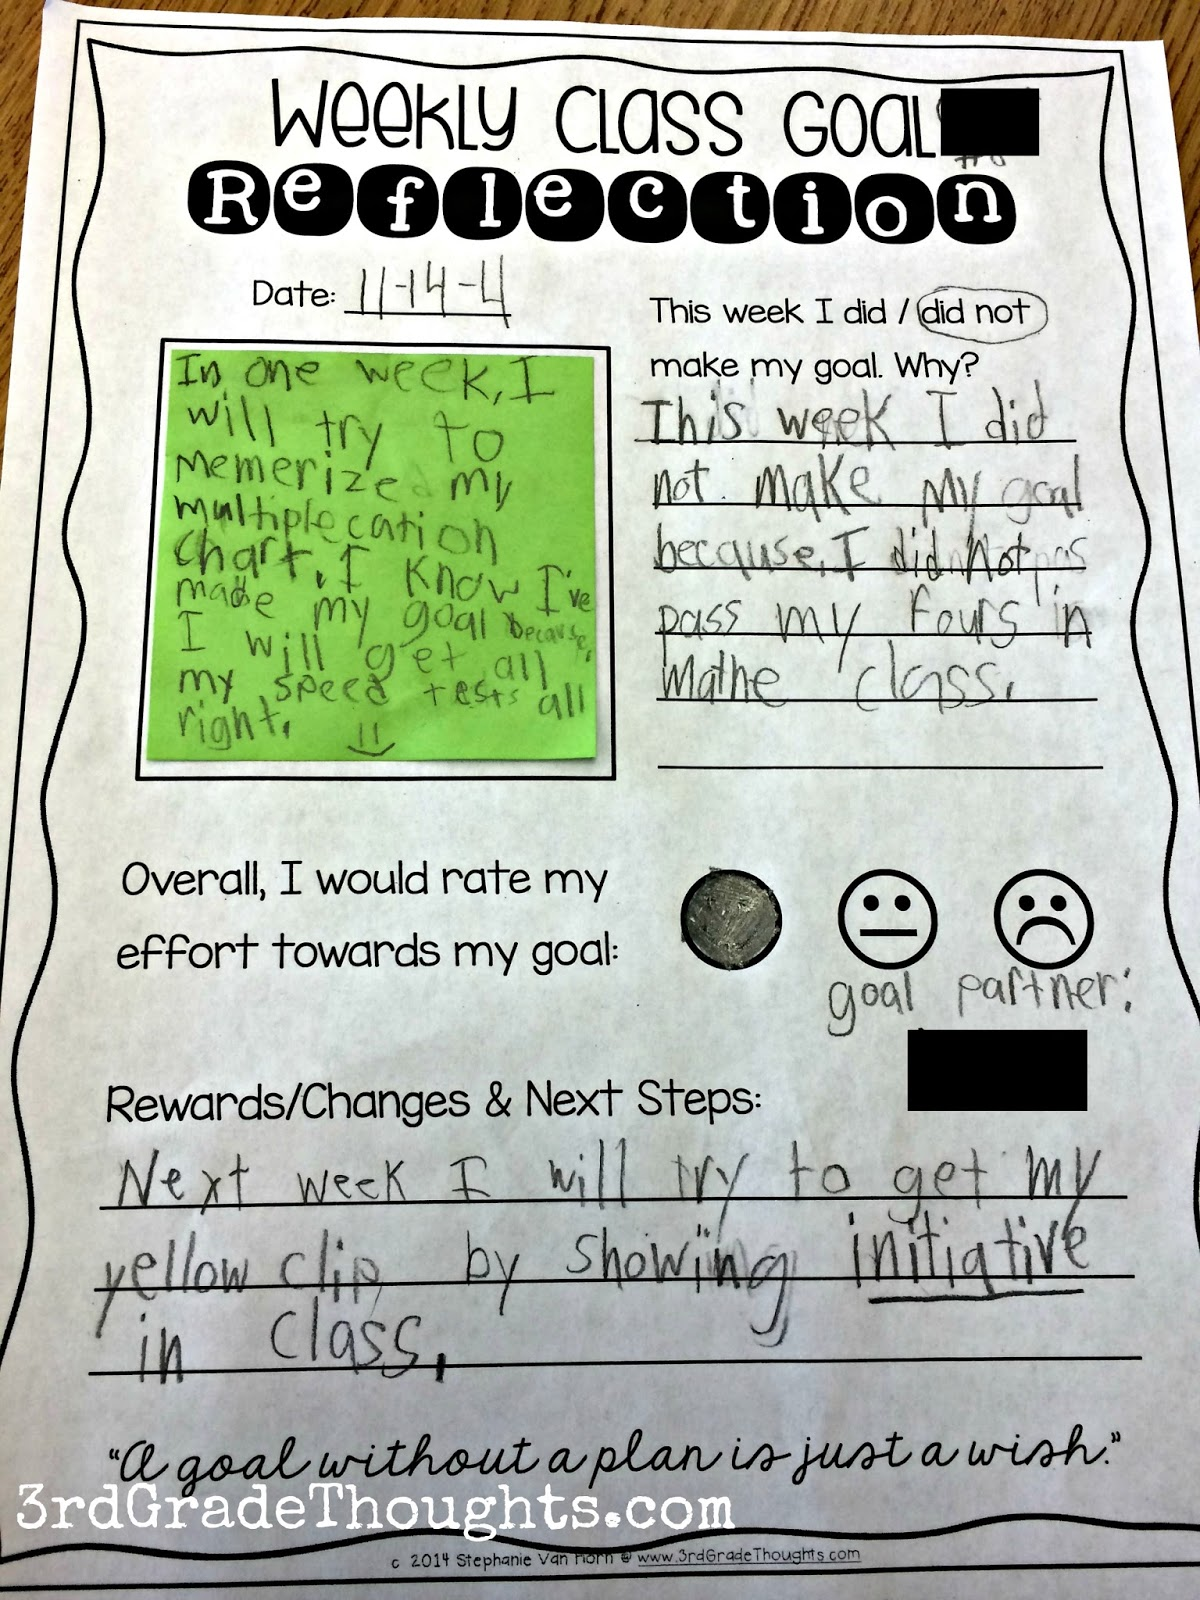 Weekly Class Goal
Reflection
Date: 11-14-4
In one week, I
will try to
memerize my
multiplecation
chart. I know I've
made my goal because,
I will get all
my speed tests all
right.
This week I did / did not
make my goal. Why?
This week I did
not make my goal
because, I did not
pass my fours in
mathe class.
Overall, I would rate my
effort towards my goal:
goal partner:
Rewards/Changes & Next Steps:
Next week I will try to get my
yellow clip by showing initiative
in class.
"A goal without a plan is just a wish."
3rdGradeThoughts.com
c 2014 Stephanie Van Horn @ www.3rdGradeThoughts.com